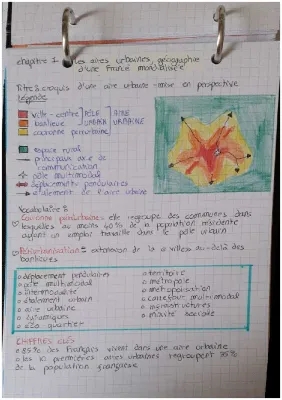 chapitre 1 : les aires urbaines, géographie
d'une France mondialisée
Titre : croquis d'une aire urbaine - mise en perspective
Légende
ville-centre PÔLE AIRE
banlieue URBAIN URBAINE
couronne périurbaine
espace rural
principaux axe de
communication
pôle multimodal
déplacements pendulaires
étalement de l'aire urbaine
Vocabulaire :
couronne périurbaine : elle regroupe des communes dans
lesquelles au moins 40% de la population résidente
ayant un emploi travaille dans le pôle urbain
Périurbanisation = extension de la ville au-delà des
banlieues
déplacement pendulaires
pôle multimodal
intermodalité
étalement urbain
aire urbaine
éco quartier
territoire
métropole
métropolisation
carrefour multimodal
infrastructures
mixité sociale
CHIFFRES CLÉS
85% des Français vivent dans une aire urbaine
les 10 premières aires urbaines regroupent 35%
de la population française